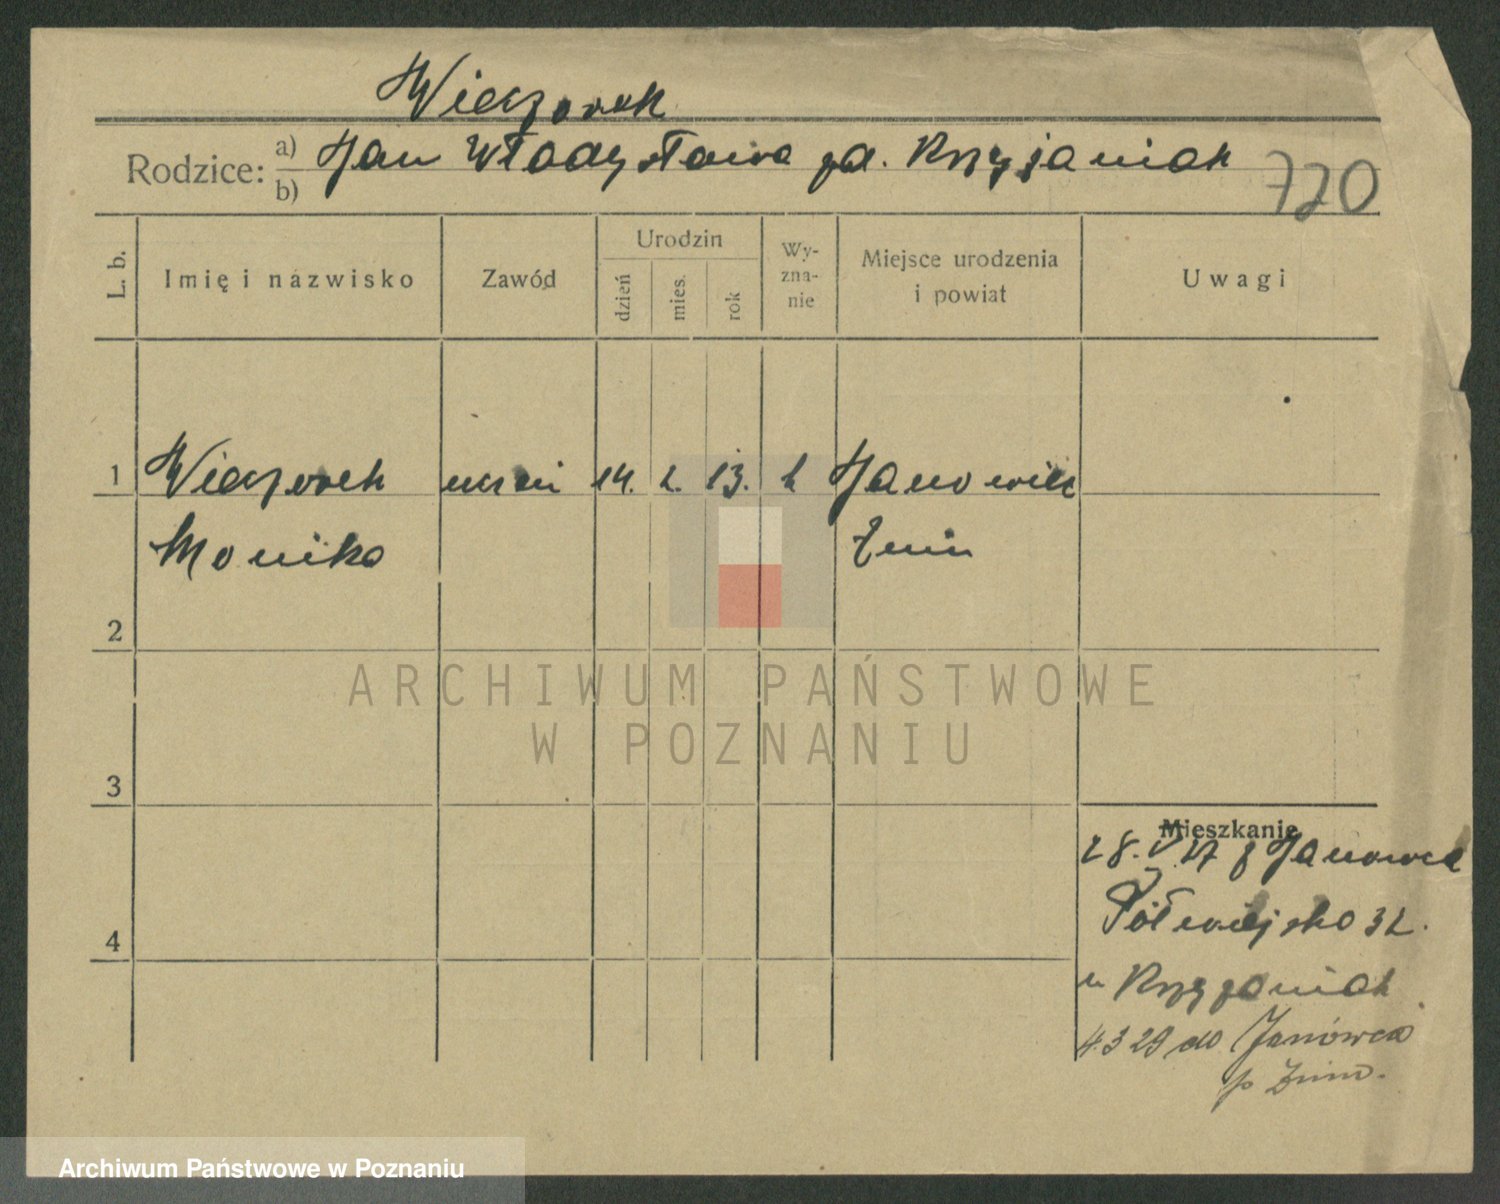 Wieczorek
Rodzice:
a) Jan Władysława zd. Krzyżaniak
b)
720
L. b.
Imię i nazwisko
Zawód
Urodzin
dzień
mies.
rok
Wy-
zna-
nie
Miejsce urodzenia
i powiat
Uwagi
1
Wieczorek
uczeń
14. 2. 13.
k
Janowiec
Monika
Żnin
2
3
4
ARCHIWUM PAŃSTWOWE
W POZNANIU
Mieszkanie
28. V. 27 z Janowca
Półwiejska 32.
u Krzyżaniak
4.3 29 do Janówca
p Żnin.
Archiwum Państwowe w Poznaniu